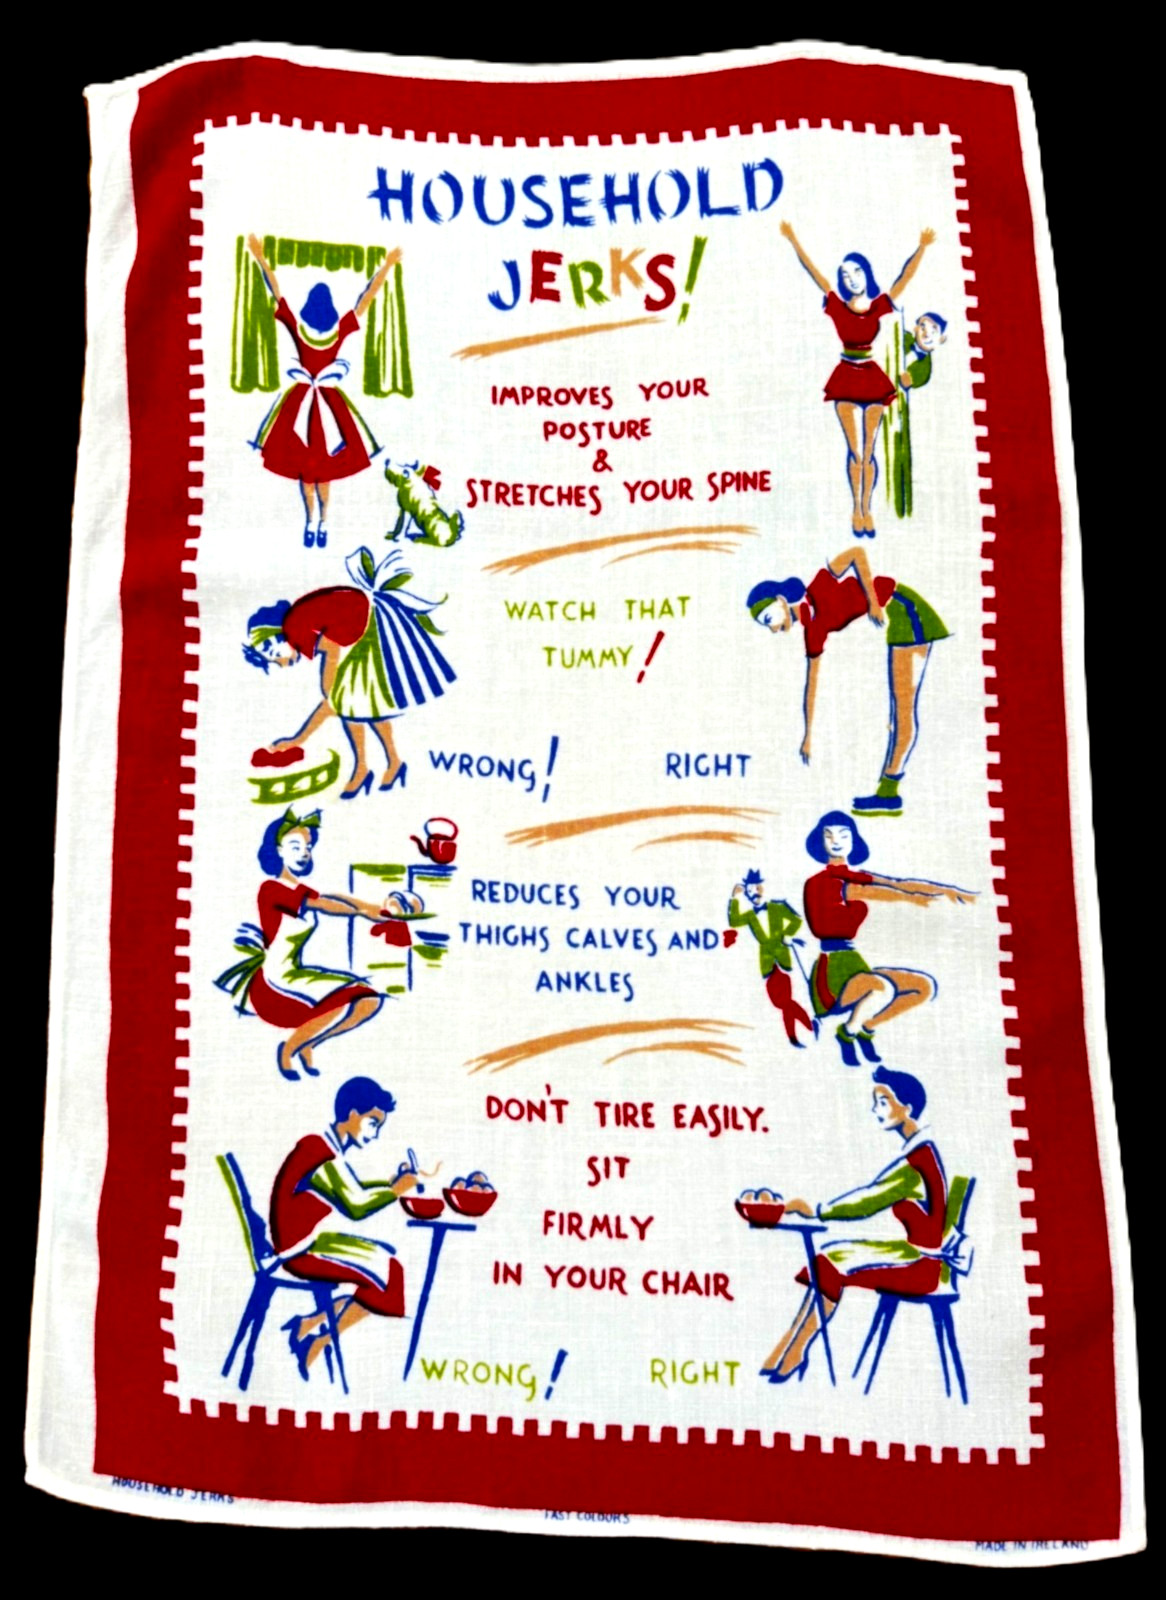 HOUSEHOLD
JERKS!
IMPROVES YOUR
POSTURE
&
STRETCHES YOUR SPINE
WATCH THAT
TUMMY!
WRONG! RIGHT
REDUCES YOUR
THIGHS CALVES AND
ANKLES
DON'T TIRE EASILY.
SIT
FIRMLY
IN YOUR CHAIR
WRONG! RIGHT
HOUSEHOLD JERKS
FAST COLOURS
MADE IN IRELAND